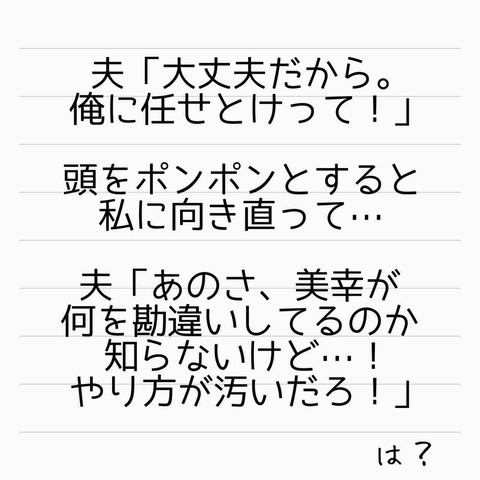 夫「大丈夫だから。
俺に任せとけって！」
頭をポンポンとすると
私に向き直って…
夫「あのさ、美幸が
何を勘違いしてるのか
知らないけど…！
やり方が汚いだろ！」
は？